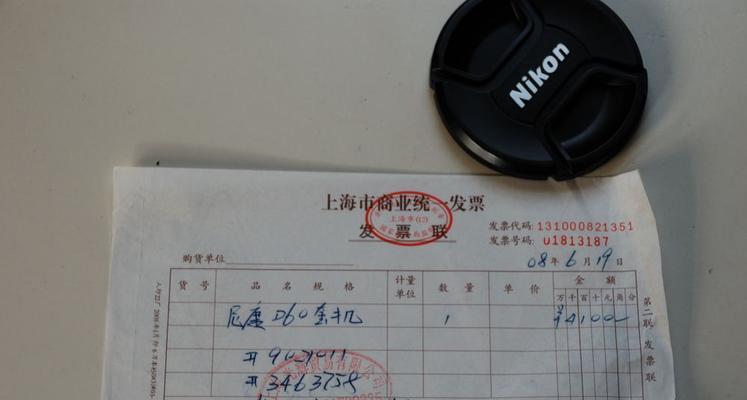 Nikon
上海市商业统一发票
发票联
发票代码: 131000821351
发票号码: 01813187
购货单位
08年6月19日
货号 品名规格 计量单位 数量 单价 金额
万千百十元角分
尼康D60套机 1 ¥4100
#9021011
#3463758
第二联发票联